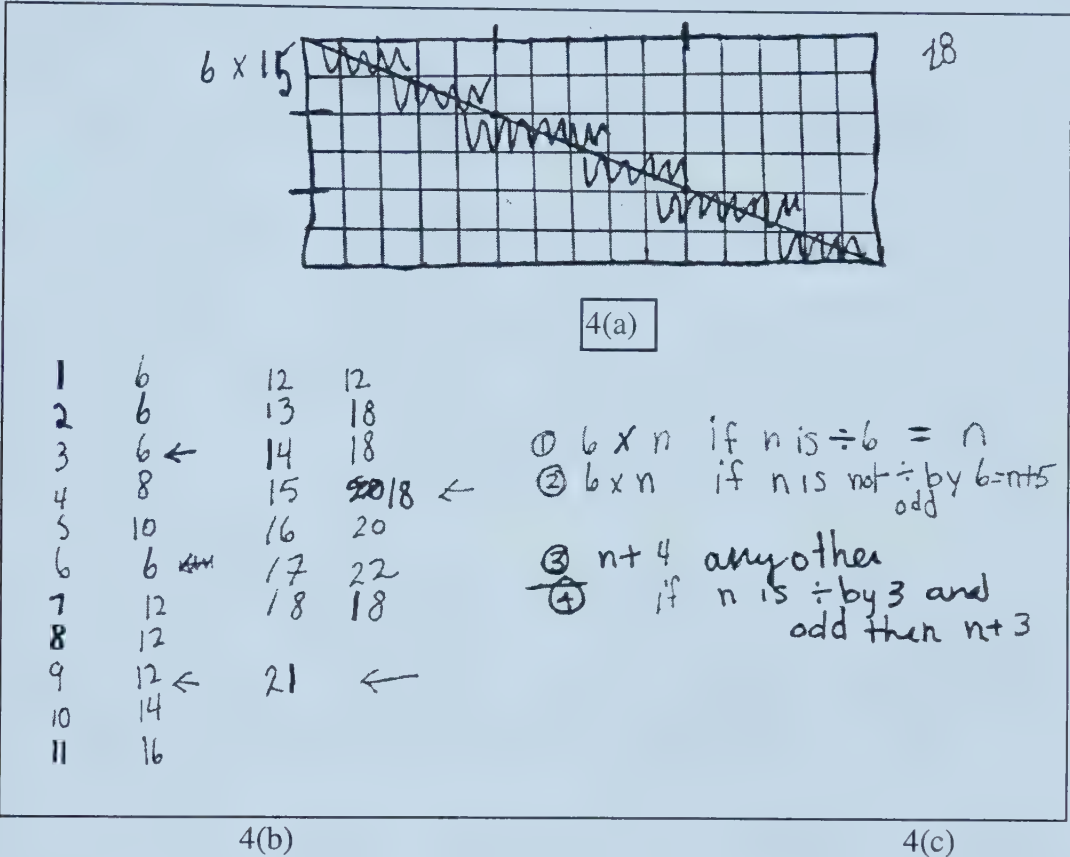 6 x 15
18
4(a)
1 6 12 12
2 6 13 18
3 6 ← 14 18
4 8 15 18 ←
5 10 16 20
6 6 17 22
7 12 18 18
8 12
9 12 ← 21 ←
10 14
11 16
① 6 x n if n is ÷6 = n
② 6 x n if n is not ÷ by 6 = n+5
odd
③ n + 4 any other
④ if n is ÷ by 3 and
odd then n + 3
4(b) 4(c)